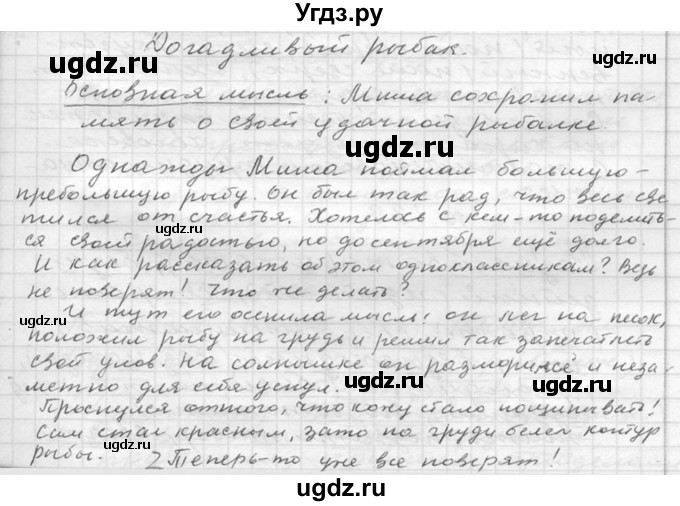 Угдз.ру
Догадливый рыбак.
Основная мысль: Миша сохранил па-
мять о своей удачной рыбалке.
Однажды Миша поймал большую-
пребольшую рыбу. Он был так рад, что весь све-
тился от счастья. Хотелось с кем-то поделить-
ся своей радостью, но до сентября ещё долго.
И как рассказать об этом одноклассникам? Ведь
не поверят! Что же делать?
И тут его осенила мысль: он лег на песок,
положил рыбу на грудь и решил так запечатлеть
свой улов. На солнышке он разморился и неза-
метно для себя уснул.
Проснулся оттого, что кожу стало пощипывать!
Сам стал красным, зато на груди белел контур
рыбы. Z Теперь-то уже все поверят!
ugdz.ru ugdz.ru
ugdz.ru
ugdz.ru ugdz.ru
ugdz.ru
ugdz.ru ugdz.ru
ugdz.ru
ugdz.ru ugdz.ru
ugdz.ru